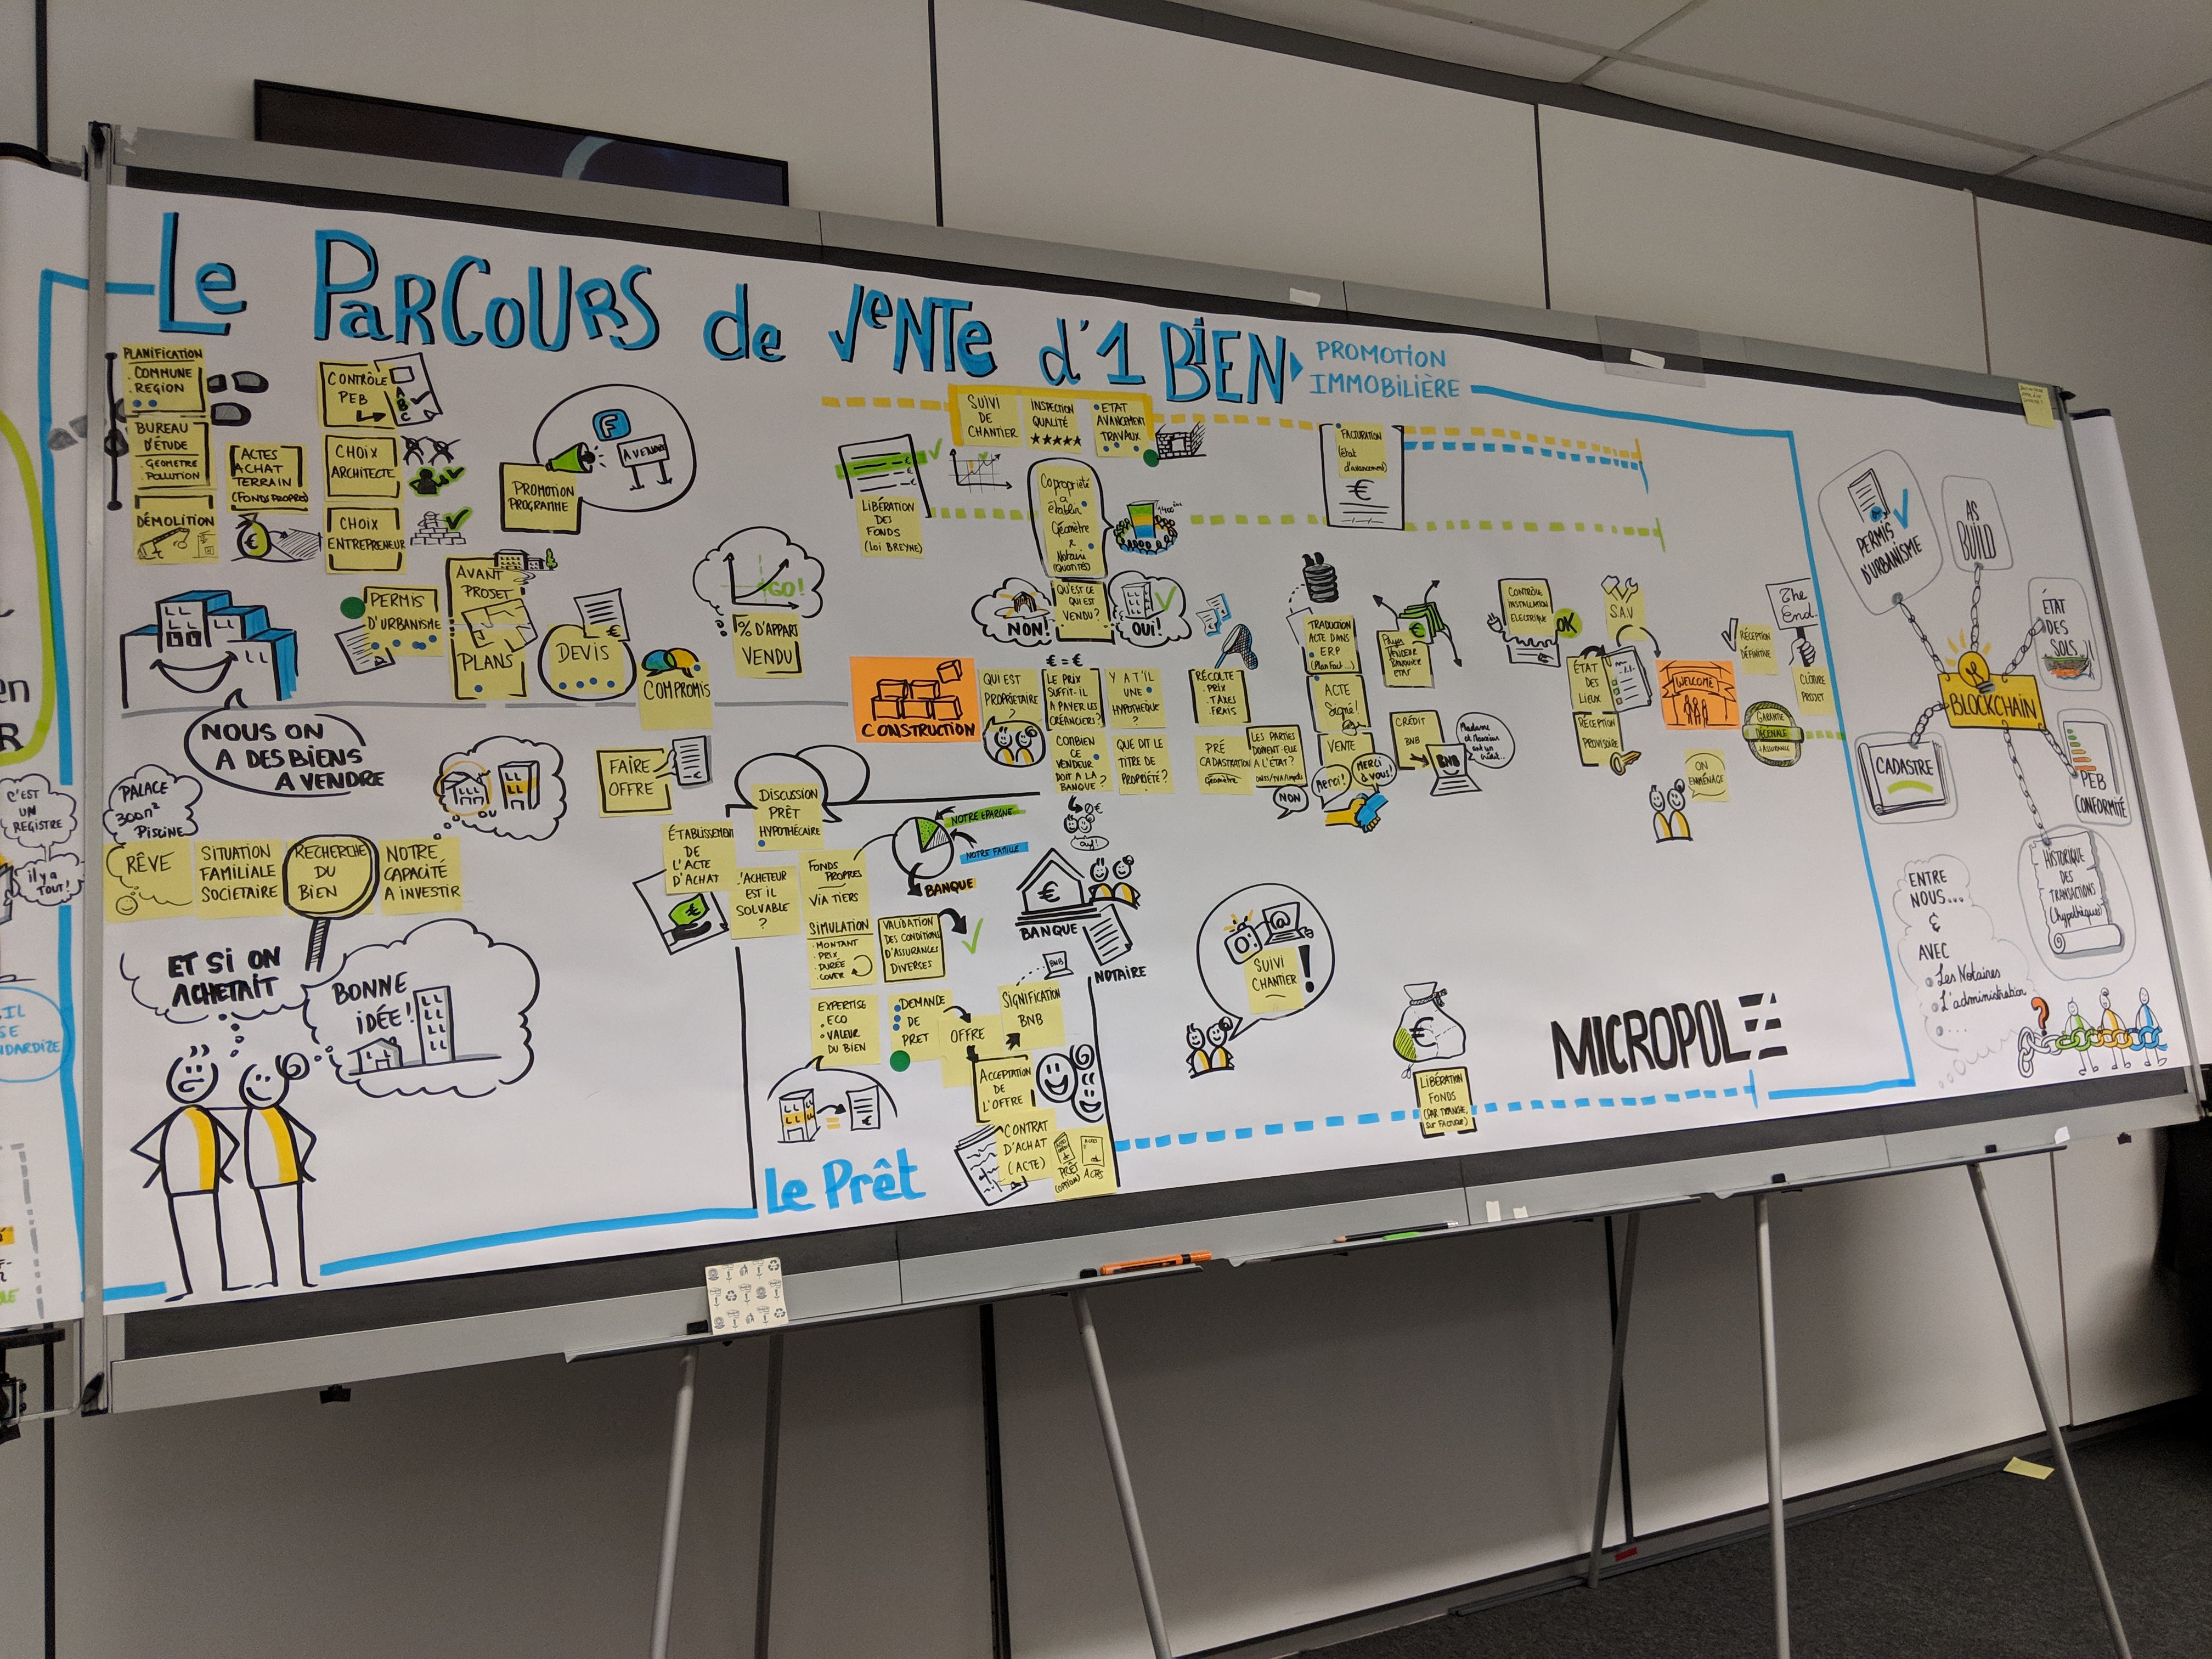 Le PARCOURS de VENTE d'1 BIEN
PROMOTION
IMMOBILIÈRE
PLANIFICATION
. COMMUNE
. REGION
BUREAU
D'ÉTUDE
. GEOMETRE
. POLLUTION
DÉMOLITION
ACTES
ACHAT
TERRAIN
(FONDS PROPRES)
€
CONTRÔLE
PEB
A
B
C
CHOIX
ARCHITECTE
CHOIX
ENTREPRENEUR
PROMOTION
PROGRAMME
F
A VENDRE
PERMIS
D'URBANISME
AVANT
PROJET
PLANS
DEVIS
€
COMPROMIS
GO!
% D'APPART
VENDU
NOUS ON
A DES BIENS
A VENDRE
SUIVI
DE
CHANTIER
INSPECTION
QUALITÉ
★★★★★
ETAT
AVANCEMENT
TRAVAUX
LIBÉRATION
DES
FONDS
(Loi BREYNE)
Copropriété
a
établir
Géomètre
&
Notaire
(Quotités)
FACTURATION
(état
d'avancement)
€
NON!
QU'EST CE
QUI EST
VENDU?
OUI!
CONSTRUCTION
QUI EST
PROPRIÉTAIRE
?
€ = €
LE PRIX
SUFFIT-IL
A PAYER LES
CRÉANCIERS?
Y A T'IL
UNE
HYPOTHÈQUE
?
COMBIEN
CE
VENDEUR
DOIT A LA
BANQUE?
QUE DIT LE
TITRE DE
PROPRIÉTÉ?
RÉCOLTE
. PRIX
. TAXES
. FRAIS
PRÉ
CADASTRATION
Géomètre
LES PARTIES
DOIVENT-ELLE
A L'ÉTAT?
NON
TRADUCTION
ACTE DANS
E.R.P
(Plan Fact...)
ACTE
Signé!
VENTE
Merci!
MERCI
à vous!
Payer
VENDEUR
BANQUIER
ETAT
€
CONTRÔLE
INSTALLATION
ELECTRIQUE
OK
S.A.V
CRÉDIT
BNB
BNB
Madame
et Monsieur
ont un
crédit...
ÉTAT
DES
LIEUX
RÉCEPTION
PROVISOIRE
WELCOME
ON
EMMÉNAGE
RÉCEPTION
DÉFINITIVE
The
End
CLÔTURE
PROJET
GARANTIE
DÉCENALE
PALACE
300m²
PISCINE
RÊVE
SITUATION
FAMILIALE
SOCIETAIRE
RECHERCHE
DU
BIEN
NOTRE
CAPACITÉ
A INVESTIR
OU
ET SI ON
ACHETAIT
BONNE
IDÉE!
FAIRE
OFFRE
DISCUSSION
PRÊT
HYPOTHÉCAIRE
ÉTABLISSEMENT
DE
L'ACTE
D'ACHAT
€
L'ACHETEUR
EST IL
SOLVABLE
?
FONDS
PROPRES
VIA TIERS
NOTRE EPARGNE
NOTRE FAMILLE
BANQUE
SIMULATION
. MONTANT
. PRIX
. DURÉE
VALIDATION
DES CONDITIONS
D'ASSURANCES
DIVERSES
€
BANQUE
NOTAIRE
EXPERTISE
ECO
. VALEUR
DU BIEN
DEMANDE
DE
PRET
OFFRE
BNB
SIGNIFICATION
BNB
ACCEPTATION
DE
L'OFFRE
CONTRAT
D'ACHAT
(ACTE)
PRÊT
(OPTION)
ACTES
Le Prêt
SUIVI
CHANTIER
!
€
LIBÉRATION
FONDS
(PAR TRANCHE,
sur FACTURE)
MICROPOLE
PERMIS
D'URBANISME
AS
BUILD
ÉTAT
DES
SOLS
BLOCKCHAIN
CADASTRE
PEB
CONFORMITÉ
HISTORIQUE
DES
TRANSACTIONS
(hypothèques)
ENTRE
NOUS...
&
AVEC
. Les Notaires
. L'administration
. ...
?
C'EST
UN
REGISTRE
il y a
TOUT!